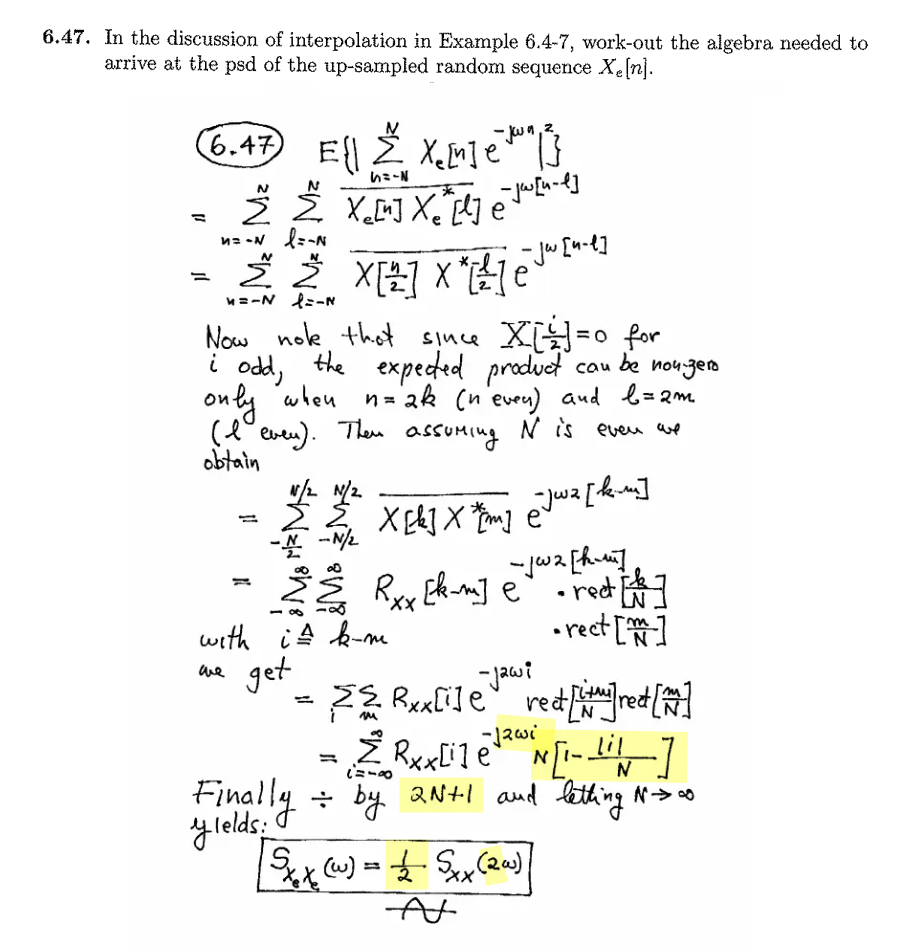 6.47. In the discussion of interpolation in Example 6.4-7, work-out the algebra needed to
arrive at the psd of the up-sampled random sequence Xₑ[n].
6.47 E{| ∑_{n=-N}^{N} Xₑ[n] e^{-jωn} |²}
= ∑_{n=-N}^{N} ∑_{l=-N}^{N} \overline{Xₑ[n] Xₑ*[l]} e^{-jω[n-l]}
= ∑_{n=-N}^{N} ∑_{l=-N}^{N} \overline{X[n/2] X*[l/2]} e^{-jω[n-l]}
Now note that since X[i/2]=0 for
i odd, the expected product can be non-zero
only when n=2k (n even) and l=2m
(l even). Then assuming N is even we
obtain
= ∑_{-N/2}^{N/2} ∑_{-N/2}^{N/2} \overline{X[k] X*[m]} e^{-jω2[k-m]}
= ∑_{-∞}^{∞} ∑_{-∞}^{∞} R_{XX}[k-m] e^{-jω2[k-m]} · rect[k/N]
· rect[m/N]
with i ≜ k-m
we get
= ∑_i ∑_m R_{XX}[i] e^{-j2ωi} rect[(i+m)/N] rect[m/N]
= ∑_{i=-∞}^{∞} R_{XX}[i] e^{-j2ωi} N[1 - |i|/N]
Finally ÷ by 2N+1 and letting N→∞
yields:
S_{XₑXₑ}(ω) = 1/2 S_{XX}(2ω)